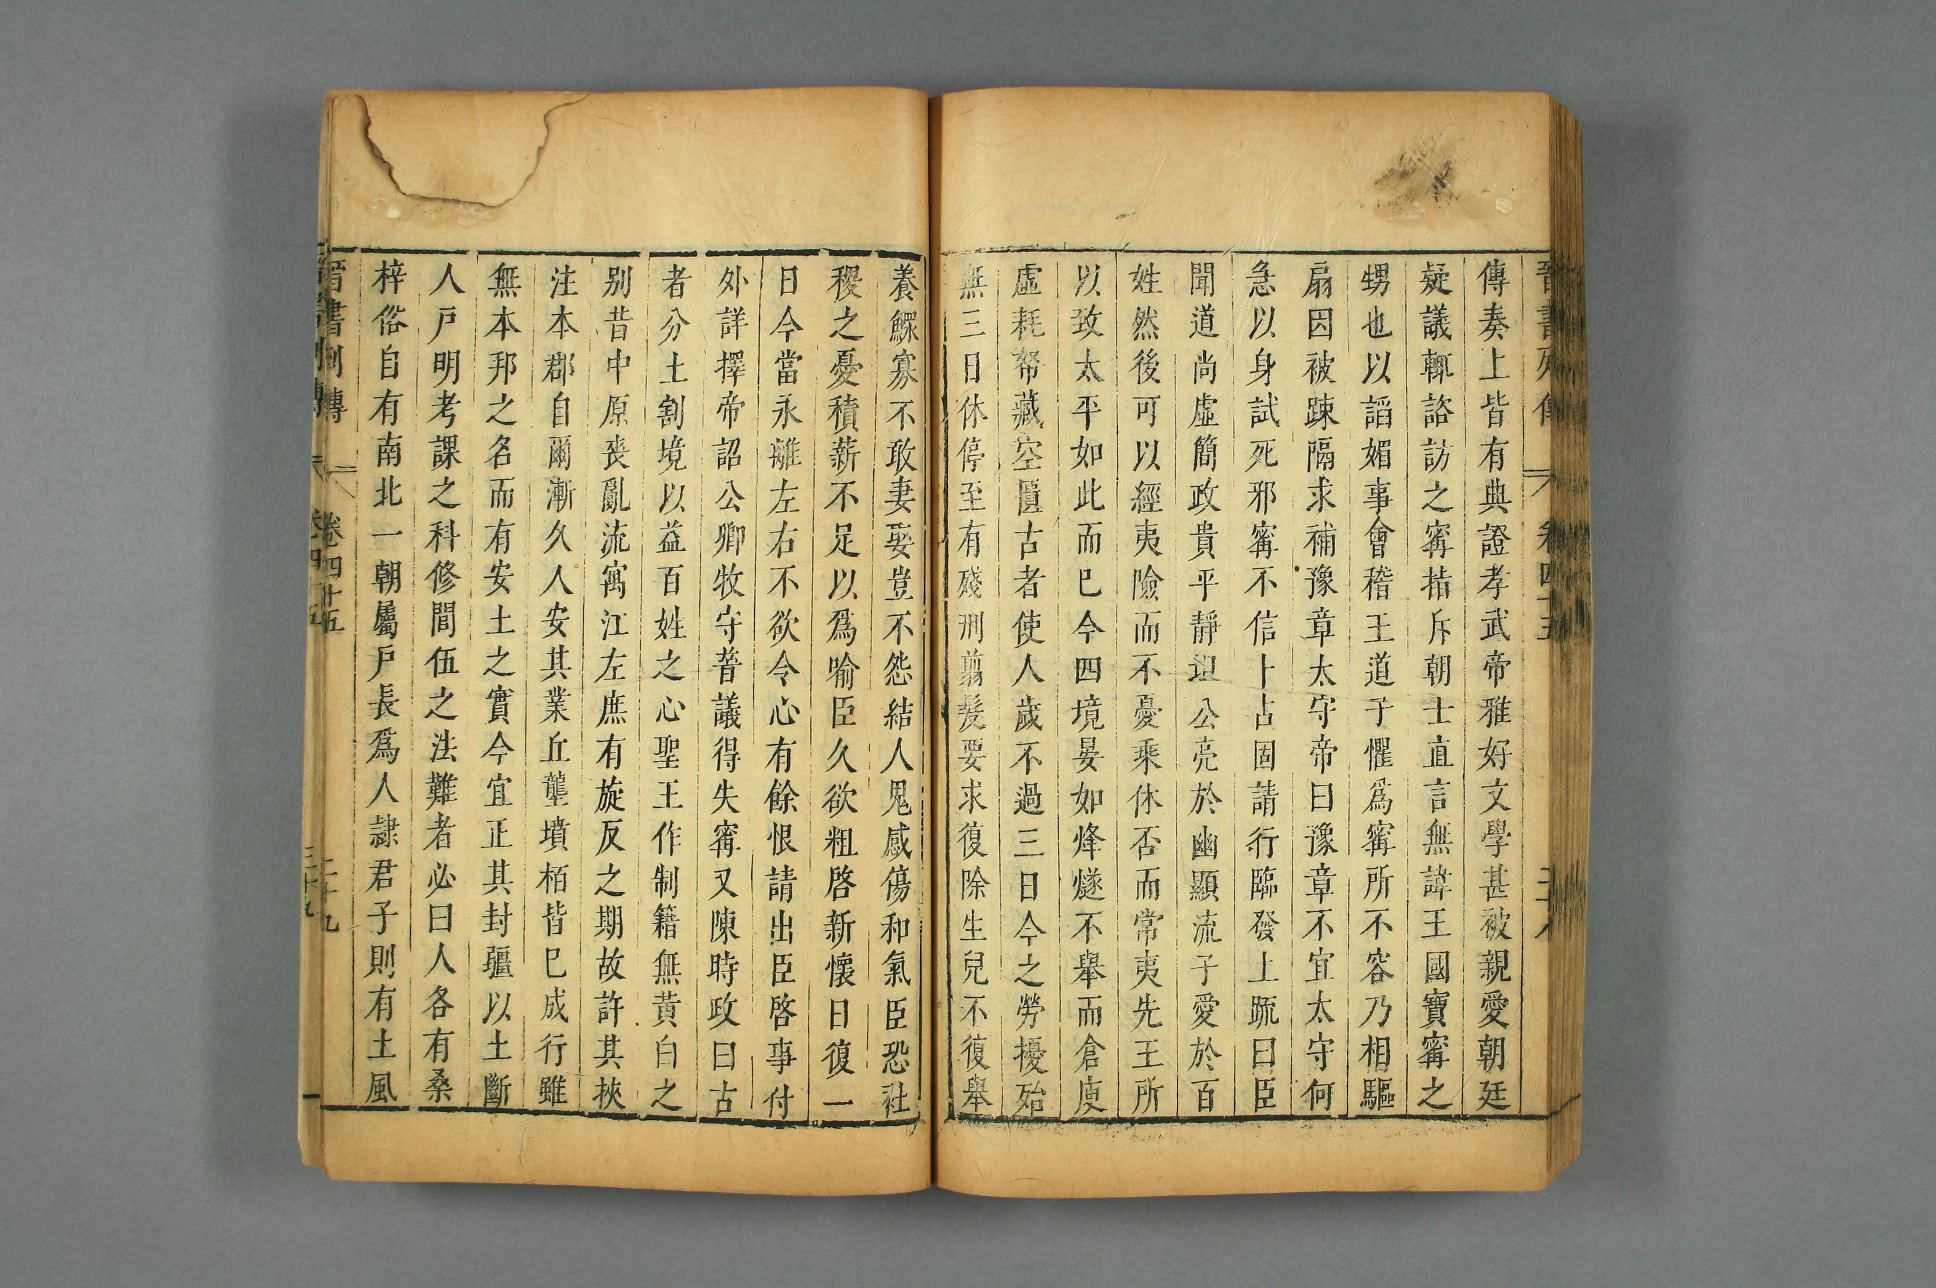 晉書列傳 卷四十五 三十八
傳奏上皆有典證孝武帝雅好文學甚被親愛朝廷
疑議輒諮訪之甯指斥朝士直言無諱王國寶甯之
甥也以諂媚事會稽王道子懼爲甯所不容乃相驅
扇因被踈隔求補豫章太守帝曰豫章不宜太守何
急以身試死邪甯不信卜占固請行臨發上疏曰臣
聞道尚虛簡政貴平靜坦公亮於幽顯流子愛於百
姓然後可以經夷險而不憂乘休否而常夷先王所
以致太平如此而巳今四境晏如烽燧不舉而倉庾
虛耗帑藏空匱古者使人歲不過三日今之勞擾殆
無三日休停至有殘刑翦髮要求復除生兒不復舉
養鰥寡不敢妻娶豈不怨結人鬼感傷和氣臣恐社
稷之憂積薪不足以爲喻臣久欲粗啓新懷日復一
日今當永離左右不欲令心有餘恨請出臣啓事付
外詳擇帝詔公卿牧守普議得失甯又陳時政曰古
者分土割境以益百姓之心聖王作制籍無黃白之
别昔中原喪亂流寓江左庶有旋反之期故許其挾
注本郡自爾漸久人安其業丘壟墳栢皆巳成行雖
無本邦之名而有安土之實今宜正其封疆以土斷
人戸明考課之科修閭伍之法難者必曰人各有桑
梓俗自有南北一朝屬戸長爲人隷君子則有土風
晉書列傳 卷四十五 三十九